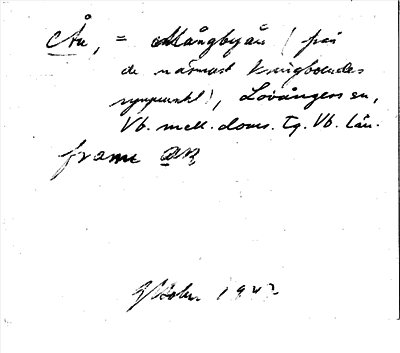 Ån, = Mångbyån (från
de närmast kringboendes
synpunkt), Lövångers sn,
Vb. mell. doms. tg. Vb. län.
fram
1942